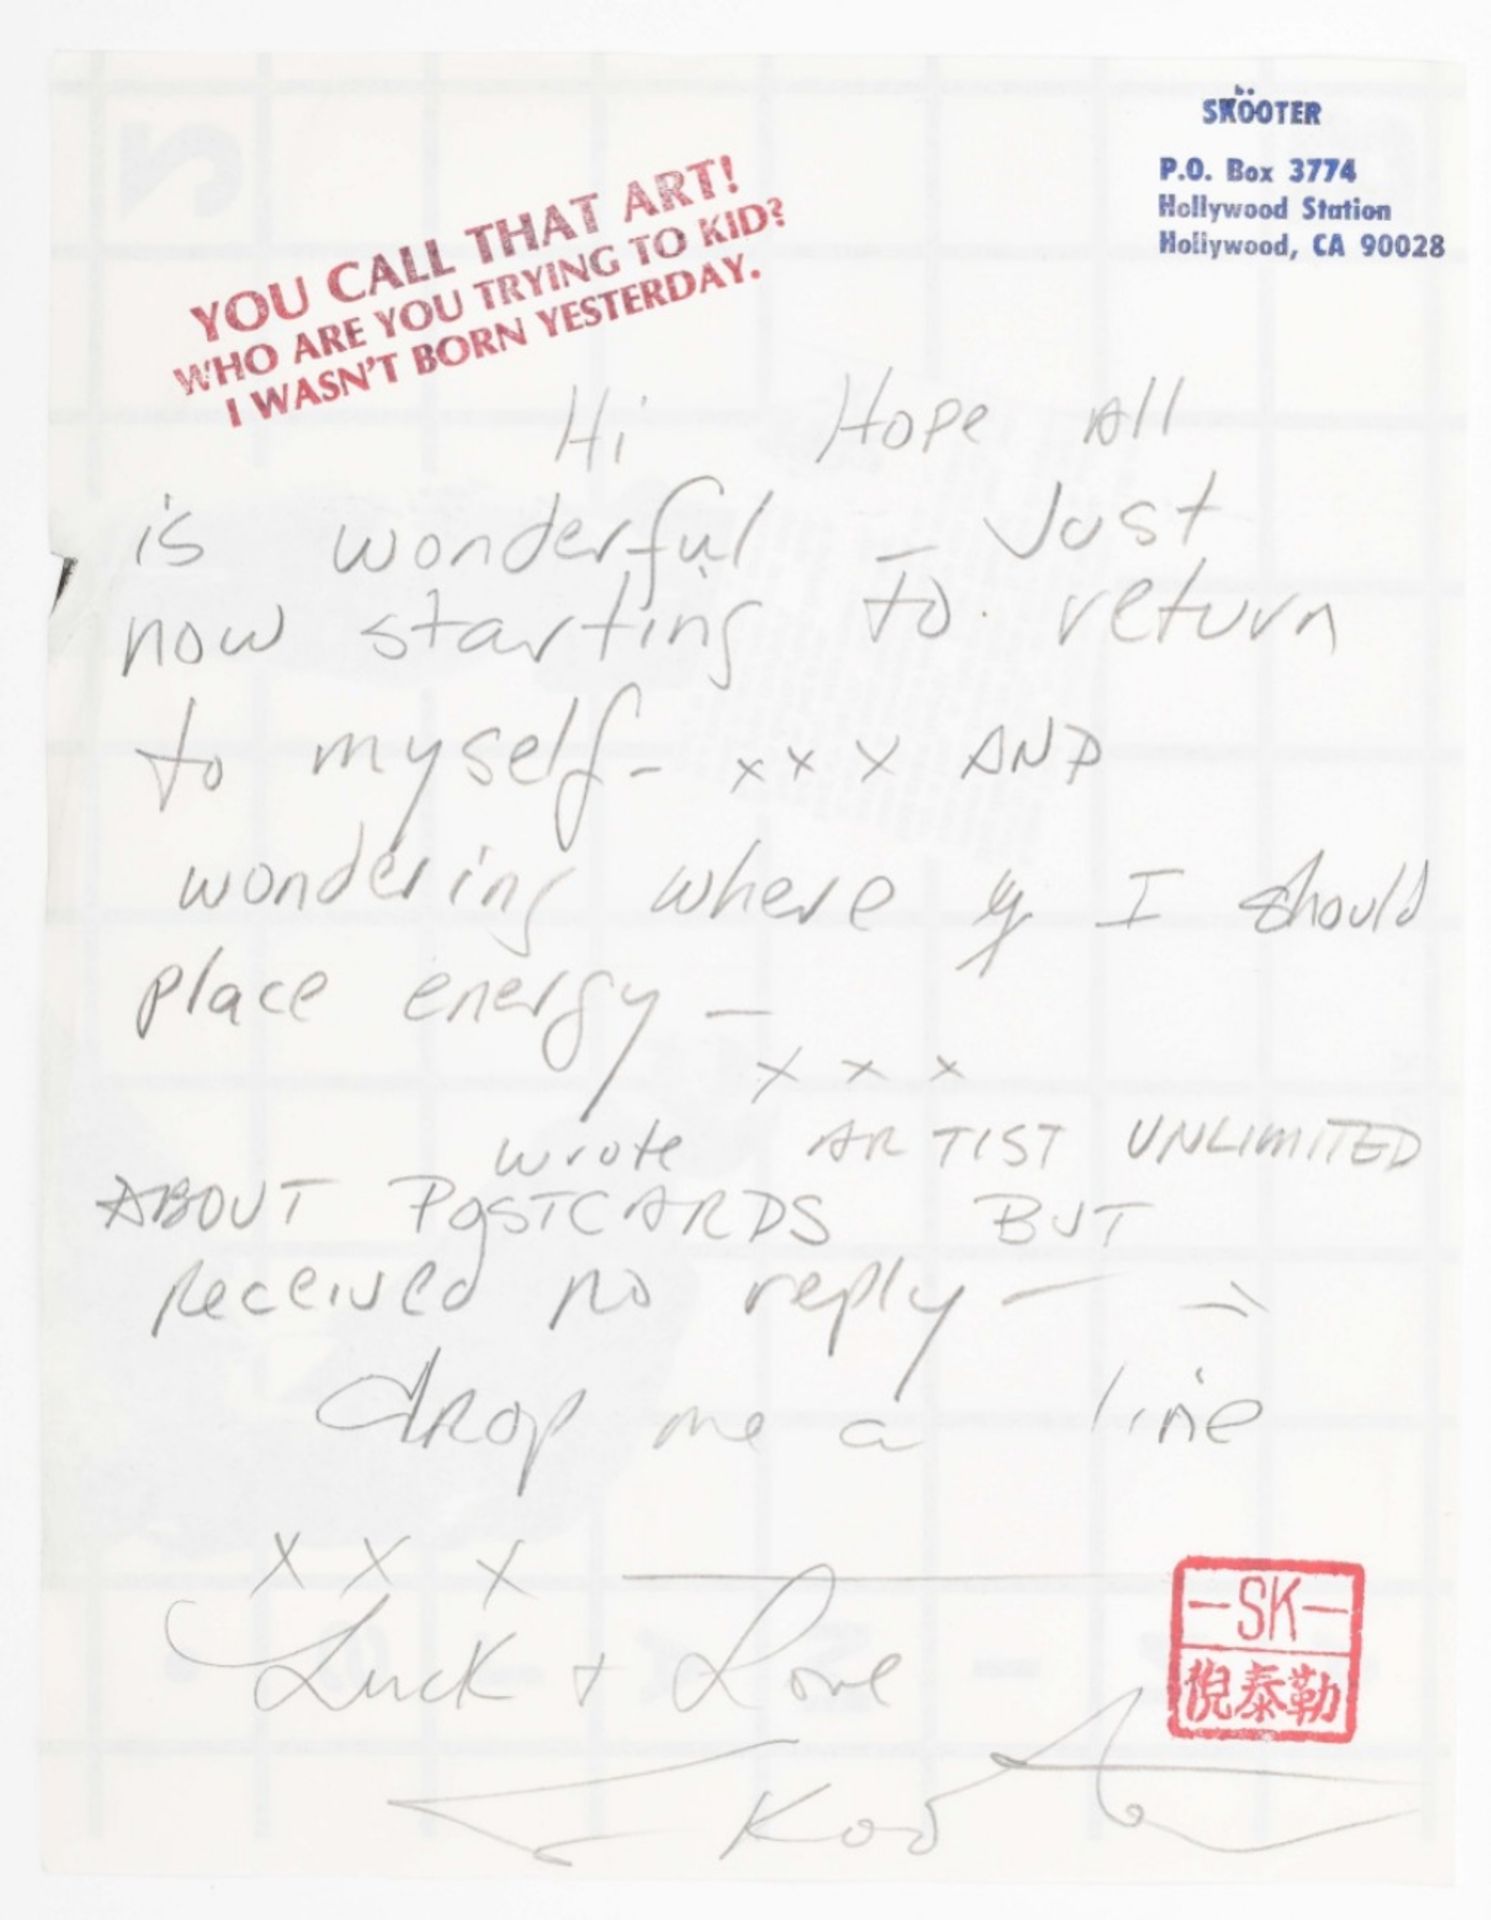 SKÖOTER
P.O. Box 3774
Hollywood Station
Hollywood, CA 90028
YOU CALL THAT ART!
WHO ARE YOU TRYING TO KID?
I WASN'T BORN YESTERDAY.
Hi Hope All
is wonderful — Just
now starting to return
to myself - x x x AND
wondering where I should
place energy —
x x x
wrote ARTIST UNLIMITED
ABOUT POSTCARDS BUT
received no reply —
drop me a line
x x x
Luck + Love
-SK-
倪泰勒